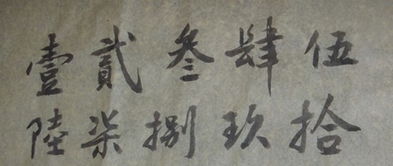 壹貳叄肆伍
陸柒捌玖拾